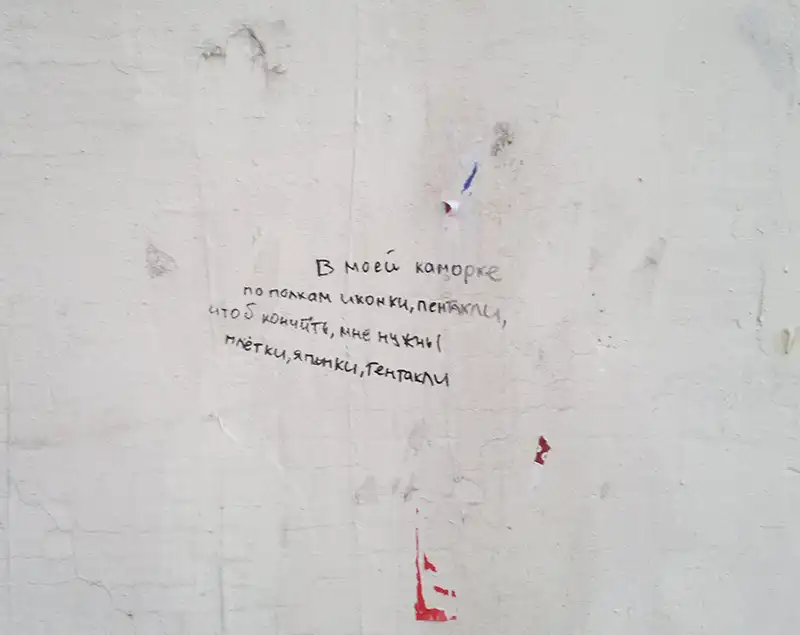 В моей каморке
по полкам иконки, пентакли,
чтоб кончить, мне нужны
плётки, японки, тентакли